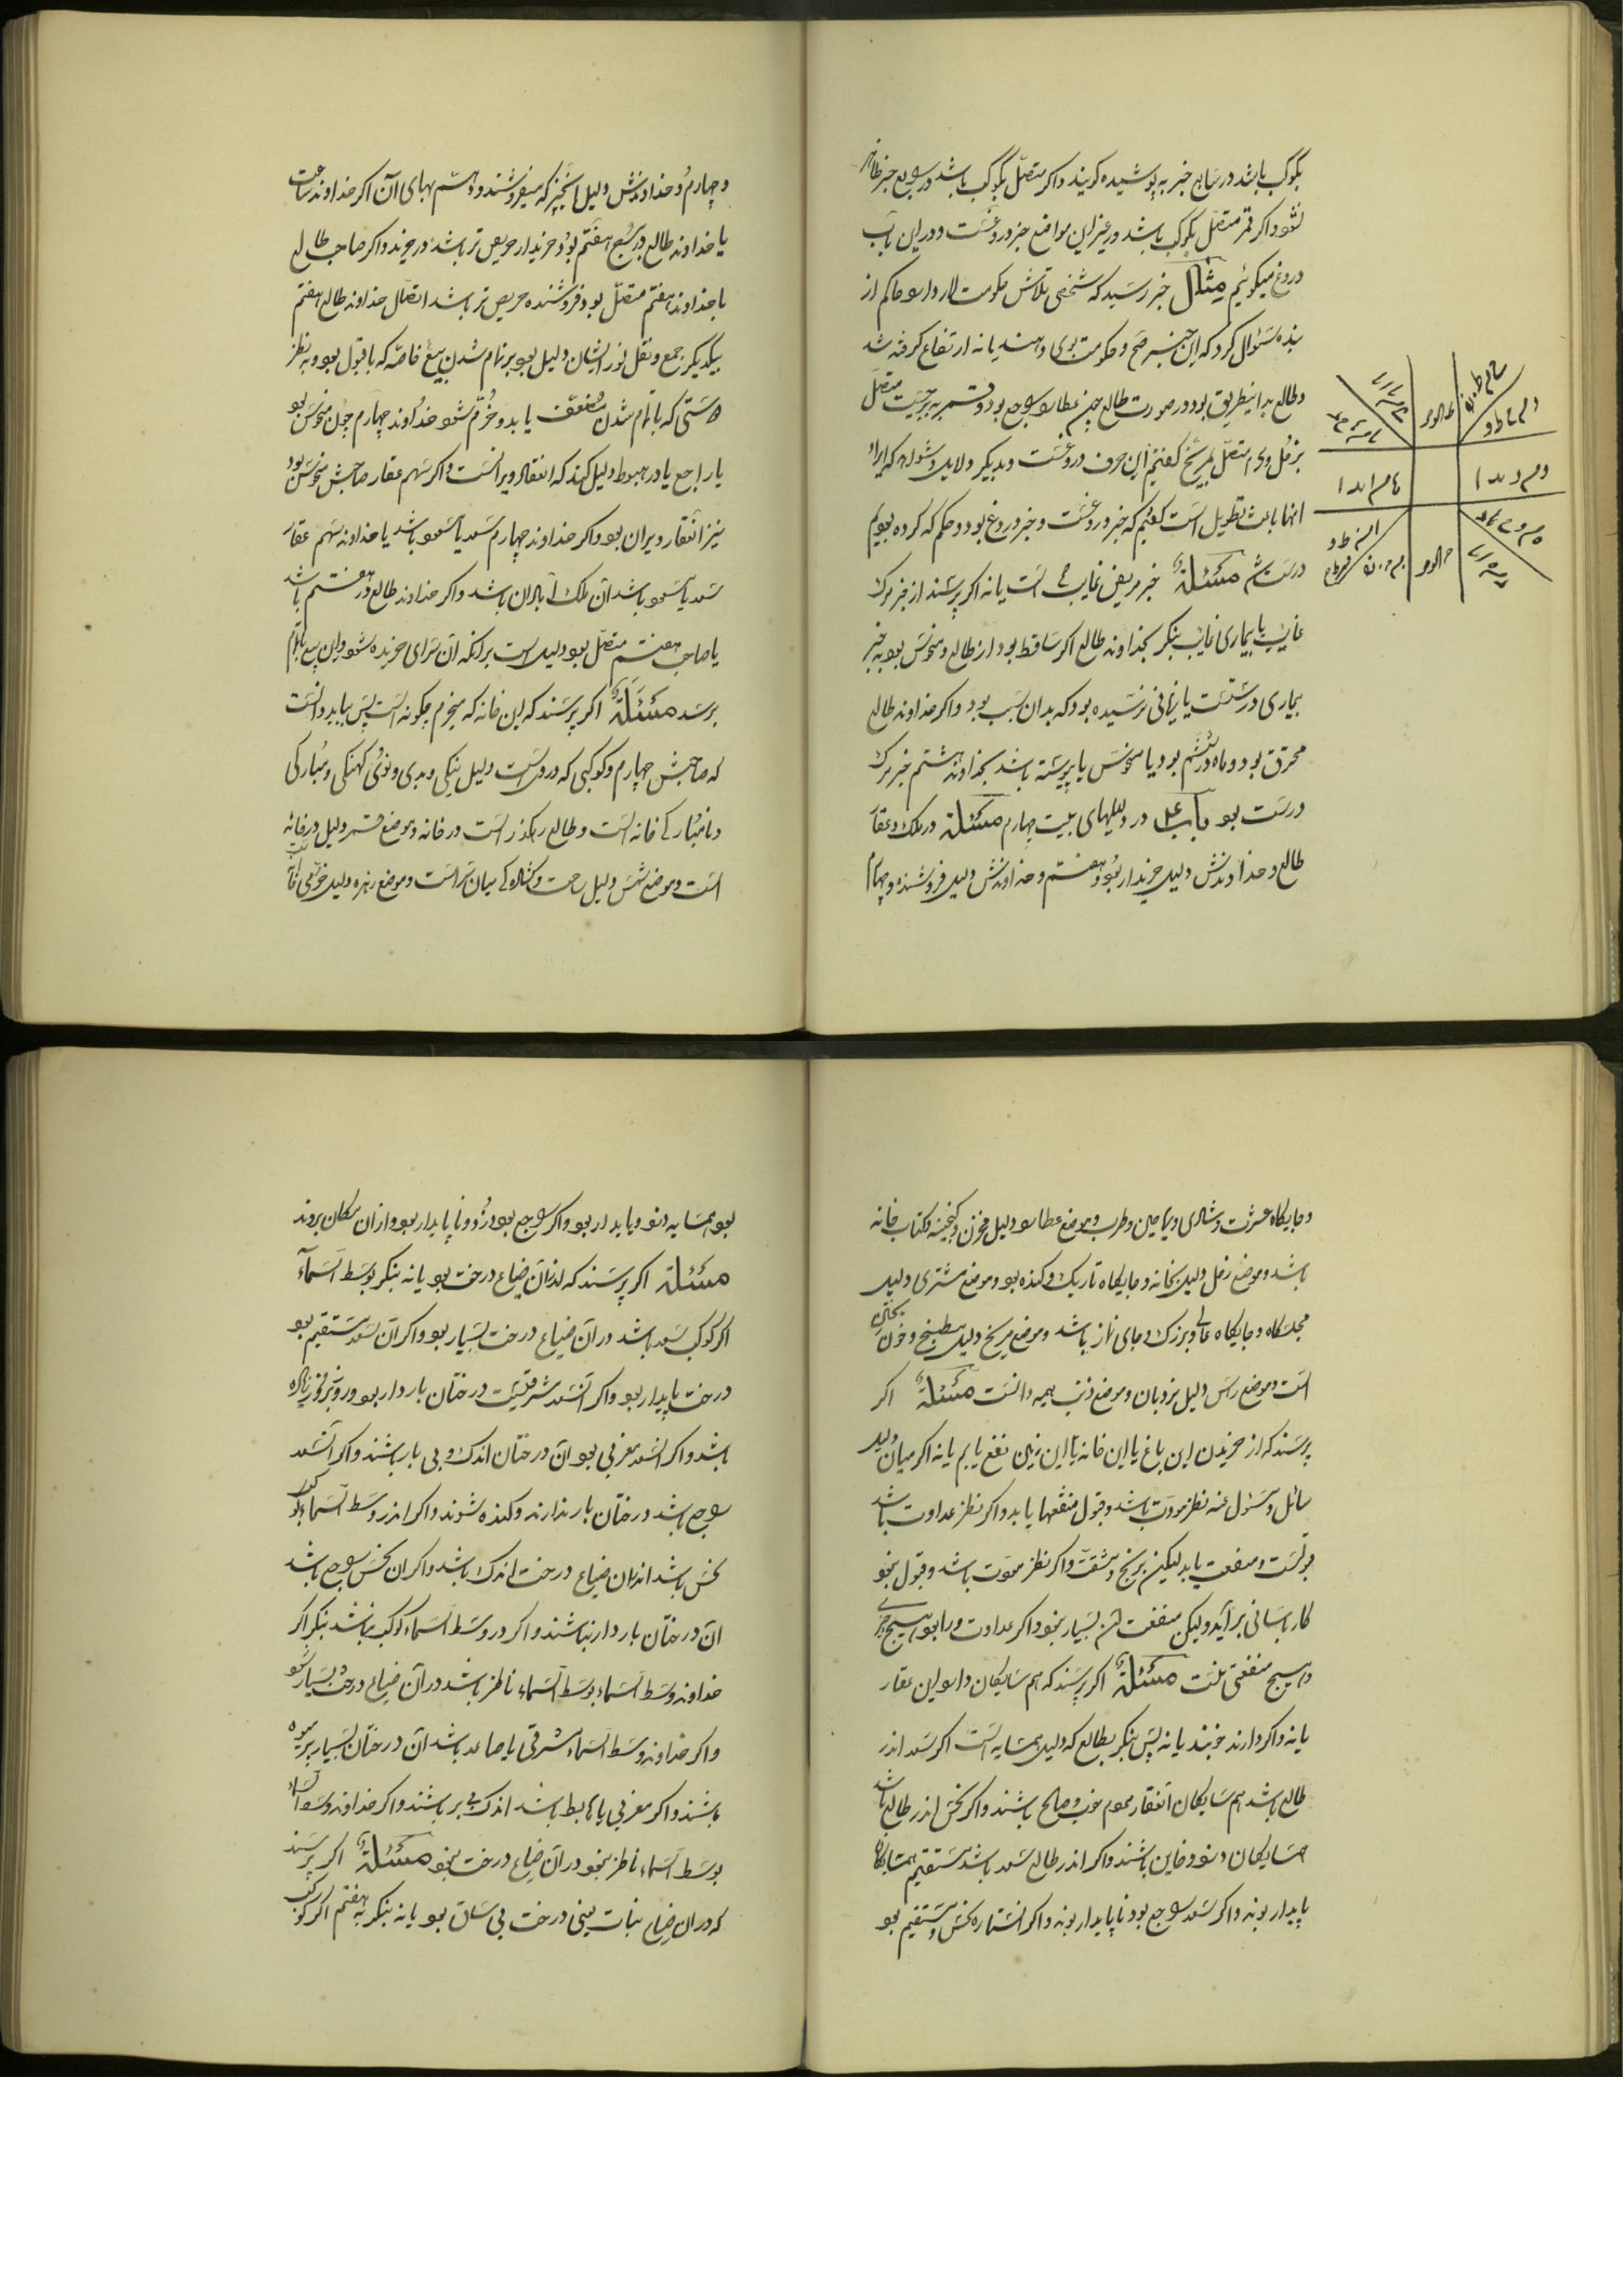 بکوکب باشد در سابع خبر به پوشیده کویند واکر متصل بکوکب باشد در رابع خبر ظاهر
شود واکر قمر متصل بکوکب باشد در غیر این مواضع خبر دروغست و در این باب
دروغ میکوئیم مثال خبر رسید که شخصی تلاش حکومت دارد و حاکم از
بنده سئوال کرد که این خبر صح و حکومت بوی دهند یا نه ارتفاع کرفته شد
و طالع بدینطریق بود در صورت طالع چون عطارد راجع بود و قمر به برجیست متصل
بزحل وی متصل بمریخ کفتم این حرف دروغست و بدیکر دلایل و شواهد که ایراد
انها باعث تطویل است کفتم که خبر دروغست و خبر دروغ بود و حکم که کرده بودیم
درست شد مسئلة خبر مریض غایب است یا نه اکر پرسند از خبر مرک
غایب یا بیماری غایب بنکر بخداوند طالع اکر ساقط بود از طالع و منحوس بود خبر
بیماری درستست یا زیانی رسیده بود که بدان سبب بود واکر خداوند طالع
محترق بود و ماه در ششم بود یا منحوس یا پیوسته باشد بخداوند هشتم خبر مرک
درست بود باب در دلیلهای بیت چهارم مسئلة در ملک و عقار
طالع و خداوندش دلیل خریدار بود و هفتم و خداوندش دلیل فروشنده و چهارم
و چهارم و خداوندش دلیل انچیز که میفروشند و دهم بهای آن اکر خداوند ساعت
یا خداوند طالع در برج هفتم بود خریدار حریص تر باشد در خرید واکر صاحب طالع
با خداوند هفتم متصل بود فروشنده حریص تر باشد اتصال خداوند طالع و هفتم
بیکدیکر جمع و نقل نور ایشان دلیل بود بر تمام شدن بیع خاصه که با قبول بود و به نظر
دوستی که با تمام شدن منفعت یابد و خرم شود خداوند چهارم چون منحوس بود
یا راجع یا در هبوط دلیل کند که انعقار ویرانست واکر سهم عقار صاحبش منحوس بود
نیز انعقار ویران بود واکر خداوند چهارم سعد یا مسعود باشد یا خداوند سهم عقار
سعد یا مسعود باشد آن ملک آبادان باشد واکر خداوند طالع در هفتم باشد
یا صاحب هفتم متصل بود دلیل است برانکه آن سرای خریده شود و این بیع بتمام
برسد مسئلة اکر پرسند که این خانه که میخرم چکونه است پس بباید دانست
که صاحبش چهارم و کوکبی که دروست دلیل نیکی و بدی و نوی کهنکی و مبارکی
و نامبارکی خانه است و طالع رهکذر است در خانه و موضع قمر دلیل در خانه
است و موضع شمس دلیل ساحت و کشادکی میان سراست و موضع زهره دلیل خوبی
و جایکاه عشرت و شادی و یاسمین و طرب و موضع عطارد دلیل مخزن و کنجینه و کتاب خانه
باشد و موضع زحل دلیل بخانه و جایکاه تاریک و کنده بود و موضع مشتری دلیل
مجلسکاه و جایکاه عالی و بزرک و جای نماز باشد و موضع مریخ دلیل مطبخ و خون ریختن
است و موضع راس دلیل نردبان و موضع ذنب بهیمه دانست مسئلة اکر
پرسند که از خریدن این باغ یا این خانه یا این زمین نفع یابم یا نه اکر میان دلیل
سائل و مسئول عنه نظر مودت باشد و قبول منفعتها یابد واکر نظر عداوت باشد
قبولست و منفعت یابد لیکن برنج و مشقت واکر نظر مودت باشد و قبول نبود
کار باسانی برآید ولیکن منفعت ان بسیار نبود واکر عداوت ورا بود هیچ خیری
و هیچ منفعتی نیست مسئلة اکر پرسند که هم سایکان دارد این عقار
یا نه واکر دارند خوبند یا نه پس بنکر بطالع که دلیل همسایه است اکر سعد اندر
طالع باشد هم سایکان انعقار مردم خوب و صالح باشند واکر نحس اندر طالع باشد
همسایکان دزد و خاین باشند واکر اندر طالع سعد باشد مستقیم همسایکان
پایدار بوند واکر سعد راجع بود ناپایدار بوند واکر انستاره نحس و مستقیم بود
بود همسایه دزد و پایدار بود واکر راجع بود دزد و ناپایدار بود و ازان مکان بروند
مسئلة اکر پرسند که اندران ضیاع درخت بود یا نه بنکر بوسط السماء
اکر کوکب سعد باشد در آن ضیاع درخت بسیار بود واکر آن سعد مستقیم بود
درخت پایدار بود واکر آنسعد شرقیست درختان باردار بود و روز بروز زیاده
باشد واکر انسعد مغربی بود آن درختان اندک و بی بار باشند واکر آنسعد
راجع باشد درختان بار ندارند وکنده شوند واکر اندر وسط السماء کوکب
نحس باشد اندران ضیاع درخت اندک باشد واکر ان نحس راجع باشد
ان درختان باردار نباشند واکر در وسط السماء کوکب نباشد بنکر اکر
خداوند وسط السماء بوسط السماء ناظر باشد در آن ضیاع درخت بسیار بود
واکر خداوند وسط السماء شرقی یا صاعد باشد آن درختان بسیار بر میوه
باشند واکر مغربی یا هابط باشد اندک بر باشند واکر خداوند وسط السماء
بوسط السماء ناظر نبود در آن ضیاع درخت نبود مسئلة اکر پرسند
که در ان ضیاع نبات یعنی درخت بی ساق بود یا نه بنکر به هفتم اکر کوکب